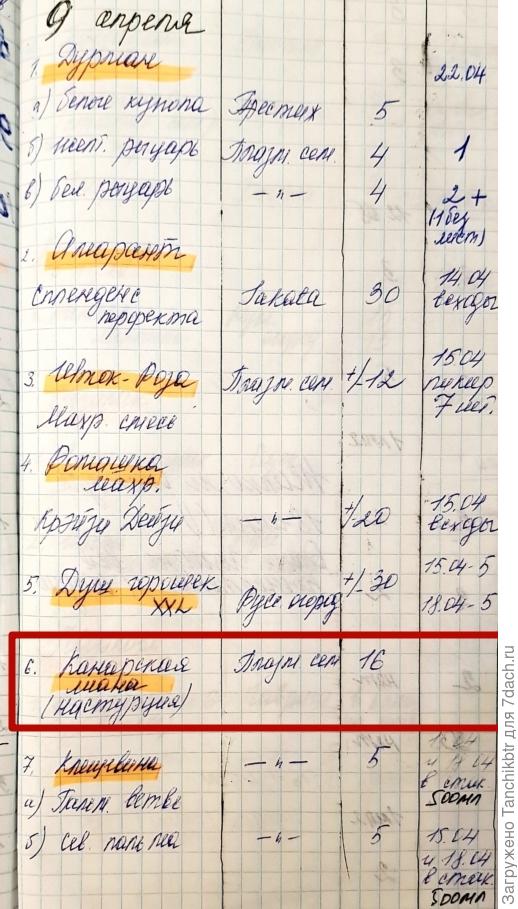 9 апреля
1. Дурман 22.04
а) белые купола Престиж 5
б) желт. рыцарь Плазм. сем. 4 1
в) бел. рыцарь —"— 4 2 +
(1 без
мест)
2. Амарант
Сплендес Гавкаса 30 14.04
перфекта всходы
3. Шток-Роза Плазм. сем. +/-12 15.04
пикир
Махр. смесь 7 шт.
4. Ромашка
махр.
Крэйзи Дейзи —"— +/-20 15.04
всходы
5. Душ. горошек +/-30 15.04-5
XXL Русс огород 18.04-5
6. Канарская Плазм. сем 16
лиана
(настурция)
7. Клещевина —"— 5 15.04
и 18.04
а) Пальм. ветвь в стак.
500мл
б) Сев. пальма —"— 5 15.04
и 18.04
в стак.
500мл
Загружено Tanchikbtr для 7dach.ru